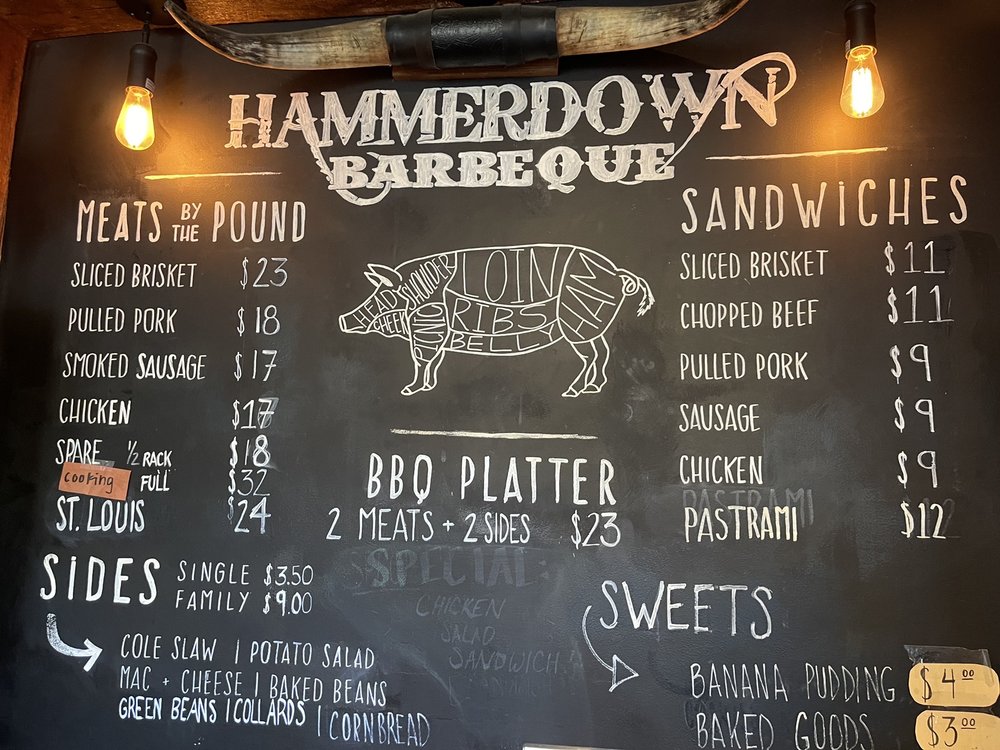 HAMMERDOWN
BARBEQUE
MEATS BY THE POUND
SLICED BRISKET $23
PULLED PORK $18
SMOKED SAUSAGE $17
CHICKEN $17
SPARE 1/2 RACK $18
cooking FULL $32
ST. LOUIS $24
SIDES SINGLE $3.50
FAMILY $9.00
COLE SLAW | POTATO SALAD
MAC + CHEESE | BAKED BEANS
GREEN BEANS | COLLARDS | CORNBREAD
HEAD
CHEEK
SHOULDER
LOIN
RIBS
BELLY
HAM
BBQ PLATTER
2 MEATS + 2 SIDES $23
SPECIAL:
CHICKEN
SALAD
SANDWICH
SANDWICHES
SLICED BRISKET $11
CHOPPED BEEF $11
PULLED PORK $9
SAUSAGE $9
CHICKEN $9
PASTRAMI
PASTRAMI $12
SWEETS
BANANA PUDDING $4.00
BAKED GOODS $3.00